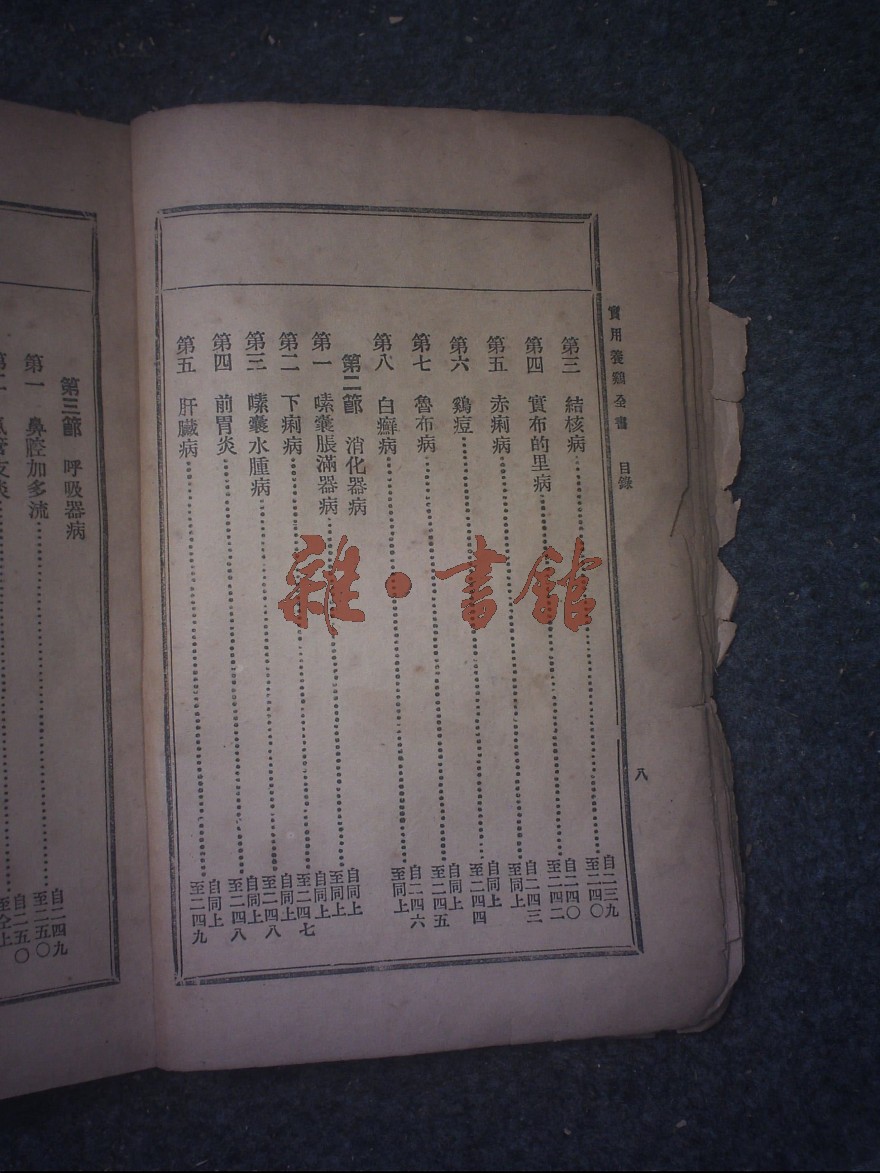 實用養鷄全書 目錄
八
第三 結核病 自二三九至二四〇
第四 實布的里病 自二四〇至二四二
第五 赤痢病 自二四三至同上
第六 鷄痘 自同上至二四四
第七 魯布病 自同上至二四五
第八 白癬病 自二四六至同上
第二節 消化器病 自同上至同上
第一 嗉囊脹滿器病 自同上至二四七
第二 下痢病 自同上至二四八
第三 嗉囊水腫病 自同上至二四八
第四 前胃炎 自同上至二四八
第五 肝臟病 自同上至二四九
第三節 呼吸器病 自二四九
第一 鼻腔加多流 至二五〇
自二五〇
至仝上
雜·書館